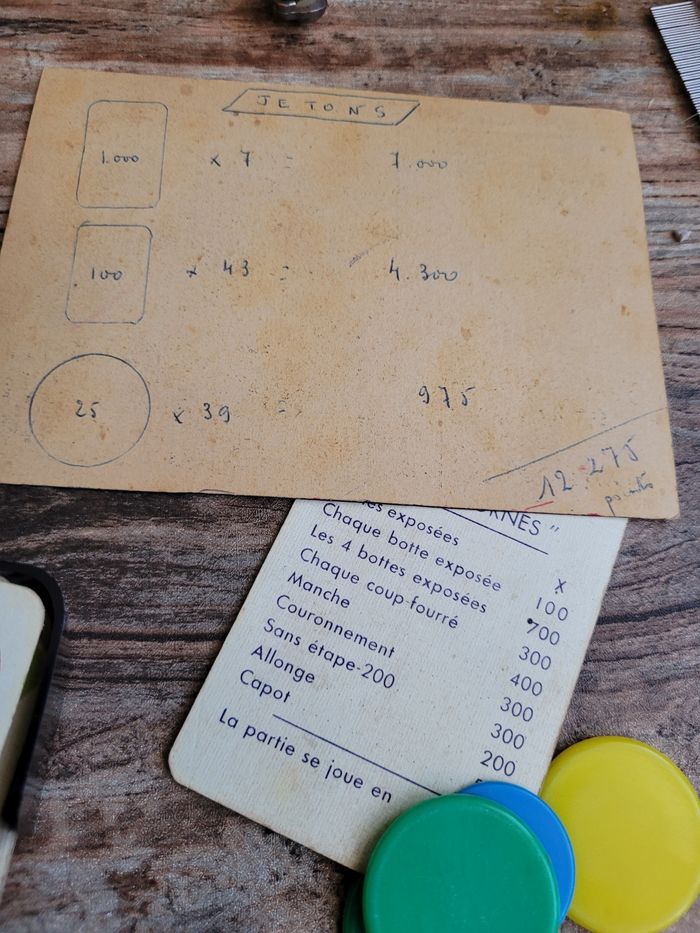 JETONS
1.000 x 7 = 7.000
100 x 43 = 4.300
25 x 39 = 975
12.275
points
exposées x
Chaque botte exposée 100
Les 4 bottes exposées 700
Chaque coup-fourré 300
Manche 400
Couronnement 300
Sans étape-200 300
Allonge 200
Capot
La partie se joue en